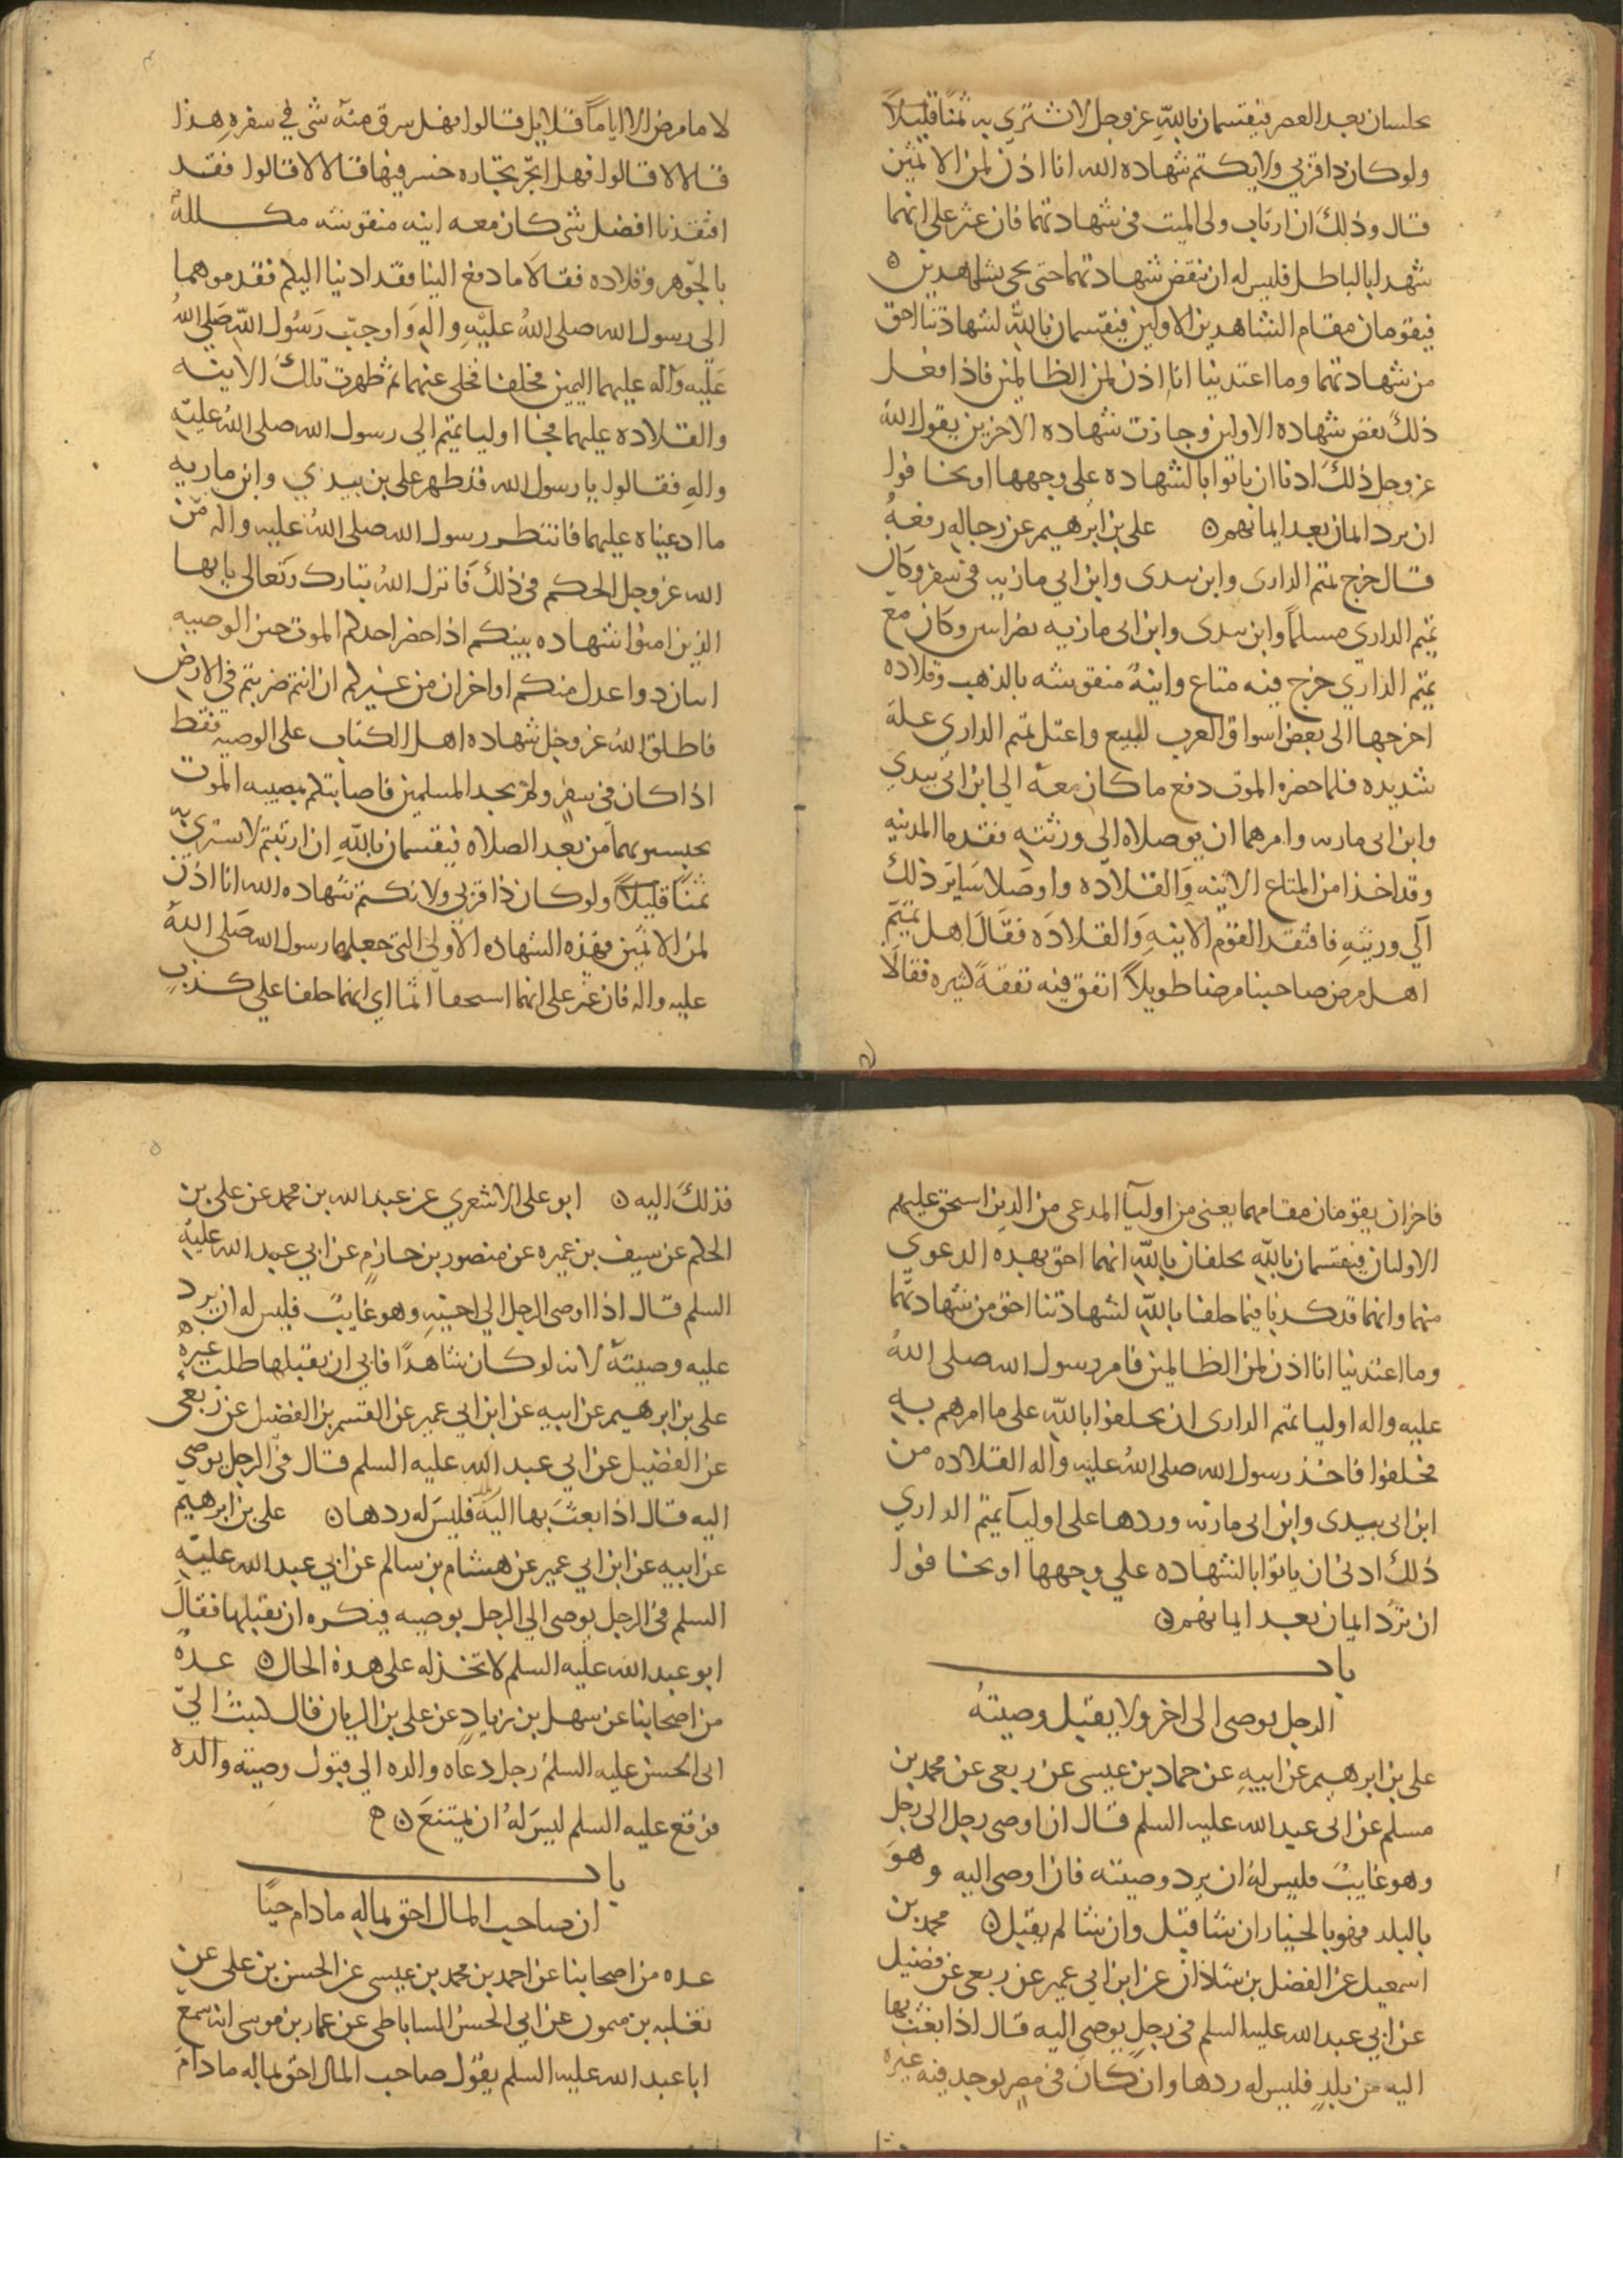 يحلسان بعد العصر فيقسمان بالله عز وجل لا نشتري به ثمنا قليلا
ولو كان ذا قربي ولا يكتم شهاده الله انا اذن لمن الاثمين
قال وذلك ان ارتاب ولى الميت فى شهادتهما فان عثر على انهما
شهدا بالباطل فليس له ان ينقض شهادتهما حتى يجى بشاهدين ن
فيقومان مقام الشاهدين الاولين فيقسمان بالله لشهادتنا احق
من شهادتهما وما اعتدينا انا اذن لمن الظالمين فاذا فعل
ذلك نقض شهاده الاولين وجازت شهاده الاخرين يقول الله
عز وجل ذلك ادنا ان ياتوا بالشهاده على وجهها او يخافوا
ان يرد ايمان بعد ايمانهم ن على بن ابرهيم عن رجاله رفعه
قال خرج تميم الدارى وابن بيدى وابن ابي ماريه فى سفر وكان
تميم الدارى مسلما وابن بيدى وابن ابى ماريه نصرانيين وكان مع
تميم الداري خرج فيه متاع وانيه منقوشه بالذهب وقلاده
اخرجها الى بعض اسواق العرب للبيع واعتل تميم الداري عله
شديده فلما حضره الموت دفع ما كان معه الى ابن ابى بيدي
وابن ابى ماريه وامرهما ان يوصلاه الى ورثته فقدما المدينه
وقد اخذا من المتاع الانيه والقلاده واوصلا ساير ذلك
الى ورثته فافتقد القوم الانيه والقلاده فقال اهل تميم
اهل مرض صاحبنا مرضا طويلا انفق فيه نفقة كثيره فقالا
لا ما مرض الا اياما قلايل قالوا فهل سرق منه شى في سفره هذا
قالا لا قالوا فهل اتجر تجاره خسر فيها قالا لا قالوا فقد
افتقدنا افضل شى كان معه انيه منقوشه مكلله
بالجوهر وقلاده فقالا ما دفع الينا فقد ادينا اليكم فقدموهما
الى رسول الله صلى الله عليه واله واوجب رسول الله صلى الله
عليه واله عليهما اليمين فحلفا فخلى عنهما ثم ظهرت تلك الانيه
والقلاده عليهما فجا اوليا تميم الي رسول الله صلى الله عليه
واله فقالوا يا رسول الله قد ظهر على بن بيدي وابن ماريه
ما ادعيناه عليهما فانتظر رسول الله صلى الله عليه واله من
الله عز وجل الحكم فى ذلك فانزل الله تبارك وتعالى يايها
الذين امنوا شهاده بينكم اذا حضر احدكم الموت حين الوصيه
اثنان ذوا عدل منكم او اخران من غيركم ان انتم ضربتم في الارض
فاطلق الله عز وجل شهاده اهل الكتاب على الوصيه فقط
اذا كان فى سفر ولم يجد المسلمين فاصابتكم مصيبه الموت
تحبسونهما من بعد الصلاه فيقسمان بالله ان ارتبتم لا نشتري به
ثمنا قليلا ولو كان ذا قربي ولا نكتم شهاده الله انا اذن
لمن الاثمين فهذه الشهاده الاولى التى جعلها رسول الله صلى الله
عليه واله فان عثر على انهما استحقا اثما اي انهما حلفا علي كذب
فاخران يقومان مقامهما يعنى من اوليا المدعى من الذين استحق عليهم
الاوليان فيقسمان بالله يحلفان بالله انهما احق بهذه الدعوي
منهما وانهما قد كذبا فيما حلفا بالله لشهادتنا احق من شهادتهما
وما اعتدينا انا اذن لمن الظالمين فامر رسول الله صلى الله
عليه واله اوليا تميم الدارى ان يحلفوا بالله على ما امرهم به
فحلفوا فاخذ رسول الله صلى الله عليه واله القلاده من
ابن ابى بيدى وابن ابى ماريه وردها على اوليا تميم الداري
ذلك ادنى ان ياتوا بالشهاده علي وجهها او يخافوا
ان ترد ايمان بعد ايمانهم ن
باب
الرجل يوصى الى اخر ولا يقبل وصيته
على بن ابرهيم عن ابيه عن حماد بن عيسى عن ربعى عن محمد بن
مسلم عن ابى عبد الله عليه السلم قال ان اوصى رجل الى رجل
وهو غايب فليس له ان يرد وصيته فان اوصى اليه وهو
بالبلد فهو بالخيار ان شا قبل وان شا لم يقبل ن محمد بن
اسمعيل عن الفضل بن شاذان عن ابن ابي عمير عن ربعى عن فضيل
عن ابي عبد الله عليه السلم فى رجل يوصى اليه قال اذا بعث بها
اليه من بلد فليس له ردها وان كان فى مصر يوجد فيه غيره
فذلك اليه ن ابو على الاشعري عن عبد الله بن محمد عن على بن
الحكم عن سيف بن عميره عن منصور بن حازم عن ابي عبد الله عليه
السلم قال اذا اوصى الرجل الي اخيه وهو غايب فليس له ان يرد
عليه وصيته لانه لو كان شاهدا فابي ان يقبلها طلب غيره
على بن ابرهيم عن ابيه عن ابن ابي عمير عن القسم بن الفضيل عن ربعى
عن الفضيل عن ابي عبد الله عليه السلم قال فى الرجل يوصي
اليه قال اذا بعث بها اليه من بلد فليس له ردها ن على بن ابرهيم
عن ابيه عن ابن ابي عمير عن هشام بن سالم عن ابي عبد الله عليه
السلم فى الرجل يوصى الي الرجل بوصيه فيكره ان يقبلها فقال
ابو عبد الله عليه السلم لا تخذله على هذه الحال ن عده
من اصحابنا عن سهل بن زياد عن على بن الريان قال كتبت الي
ابى الحسن عليه السلم رجل دعاه والده الي قبول وصيته والده
فوقع عليه السلم ليس له ان يمتنع ن ه
باب
ان صاحب المال احق بماله مادام حيا
عده من اصحابنا عن احمد بن محمد بن عيسى عن الحسن بن على عن
ثعلبه بن ميمون عن ابي الحسن الساباطى عن عمار بن موسى انه سمع
ابا عبد الله عليه السلم يقول صاحب المال احق بماله مادام